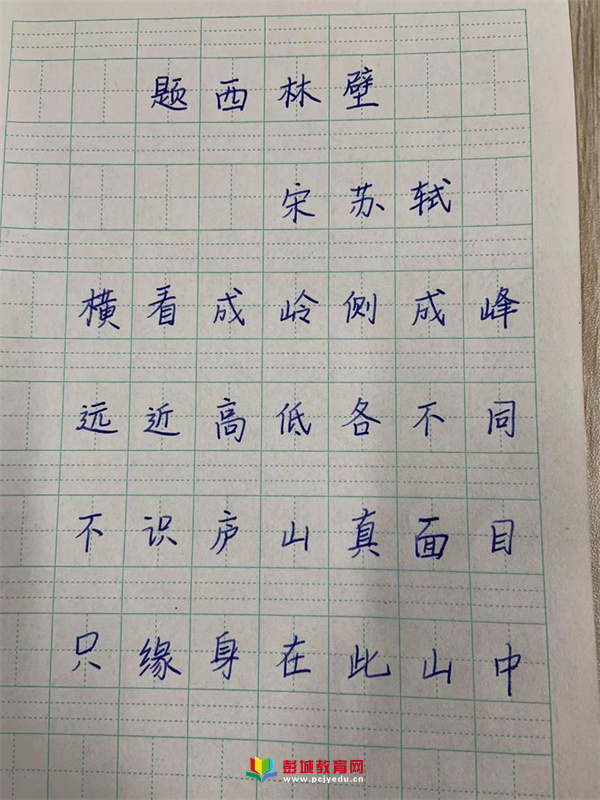 题西林壁
宋苏轼
横看成岭侧成峰
远近高低各不同
不识庐山真面目
只缘身在此山中
彭城教育网
www.pcjyedu.cn